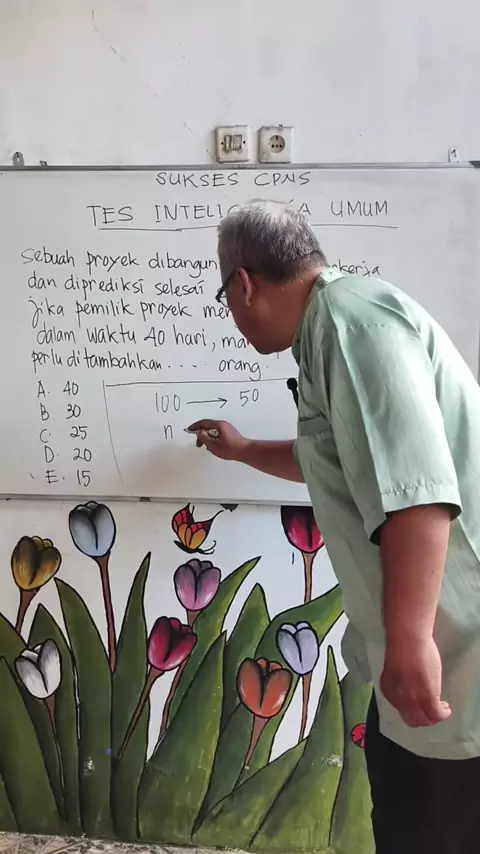 SUKSES CPNS
TES UMUM
Sebuah proyek dibangun
dan diprediksi selesai
jika pemilik proyek
dalam waktu 40 hari,
perlu ditambahkan .... orang.
A. 40
B. 30
C. 25
D. 20
E. 15
100 → 50
n